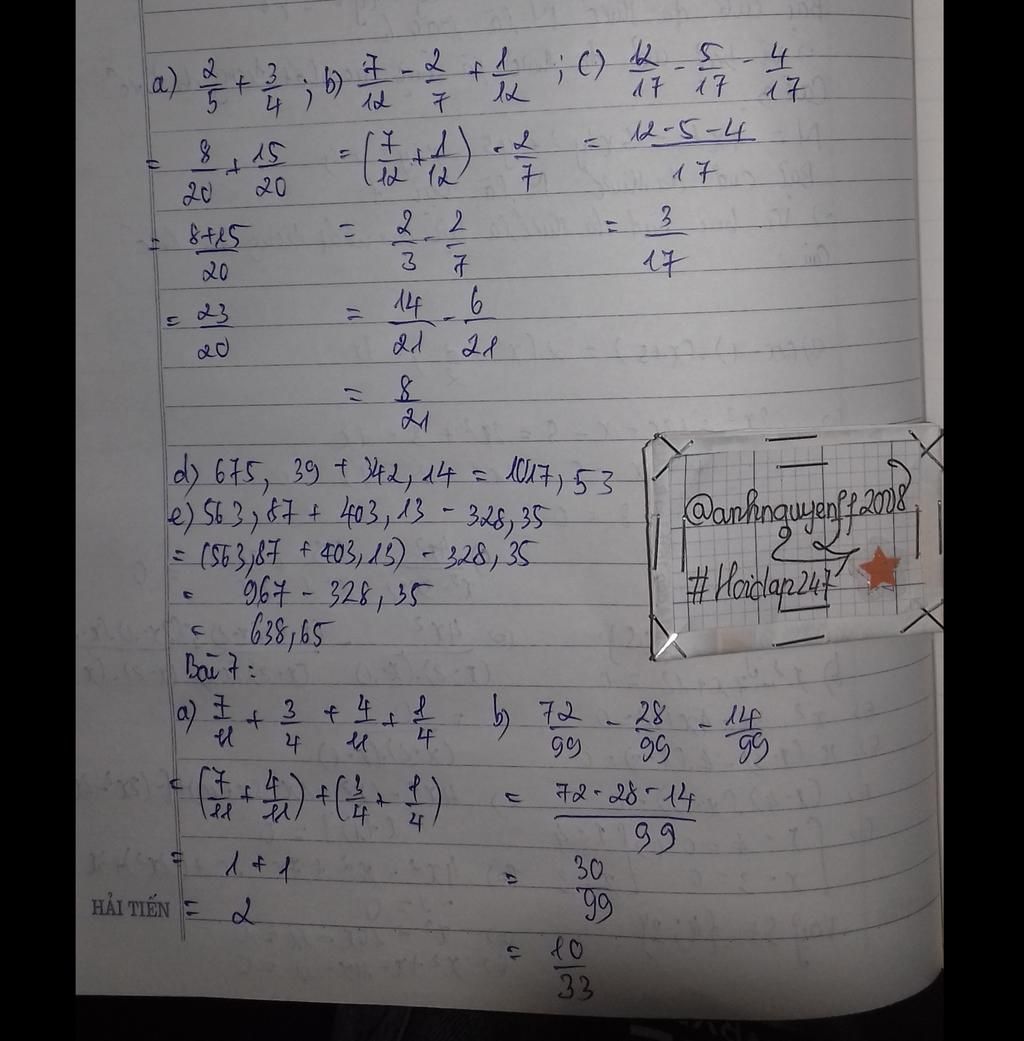 a) 2/5 + 3/4 ; b) 7/12 - 2/7 + 1/12 ; c) 12/17 - 5/17 - 4/17
= 8/20 + 15/20 = (7/12 + 1/12) - 2/7 = 12-5-4/17
= 8+15/20 = 2/3 - 2/7 = 3/17
= 23/20 = 14/21 - 6/21
= 8/21
d) 675,39 + 342,14 = 1017,53
e) 563,87 + 403,13 - 328,35
= (563,87 + 403,13) - 328,35
= 967 - 328,35
= 638,65
@anhnguyenff2008
#Hoidap247
Bài 7:
a) 7/11 + 3/4 + 4/11 + 1/4 b) 72/99 - 28/99 - 14/99
= (7/11 + 4/11) + (3/4 + 1/4) = 72-28-14/99
= 1 + 1 = 30/99
= 2
= 10/33
HẢI TIẾN